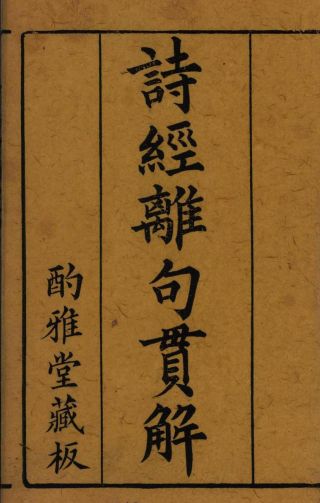 詩經離句貫解
酌雅堂藏板